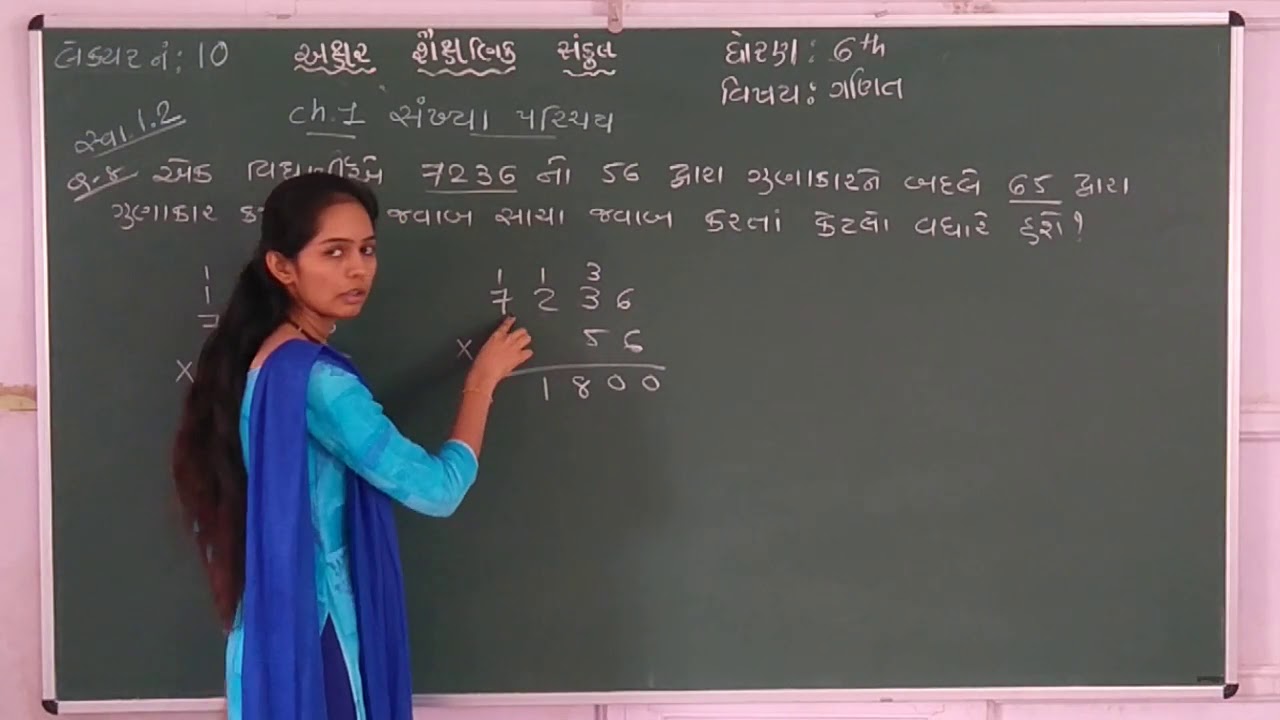 લેક્ચર નં: 10
અક્ષર શૈક્ષણિક સંકુલ
ધોરણ: 6th
વિષય: ગણિત
ch.1 સંખ્યા પરિચય
સ્વા.1.2
એક 7236 નો 56 દ્વારા ગુણાકારને બદલે 65 દ્વારા
ગુણાકાર જવાબ સાચા જવાબ કરતાં કેટલો વધારે હશે?
1
1
7
×
1 1 3
7 2 3 6
× 5 6
1 8 0 0